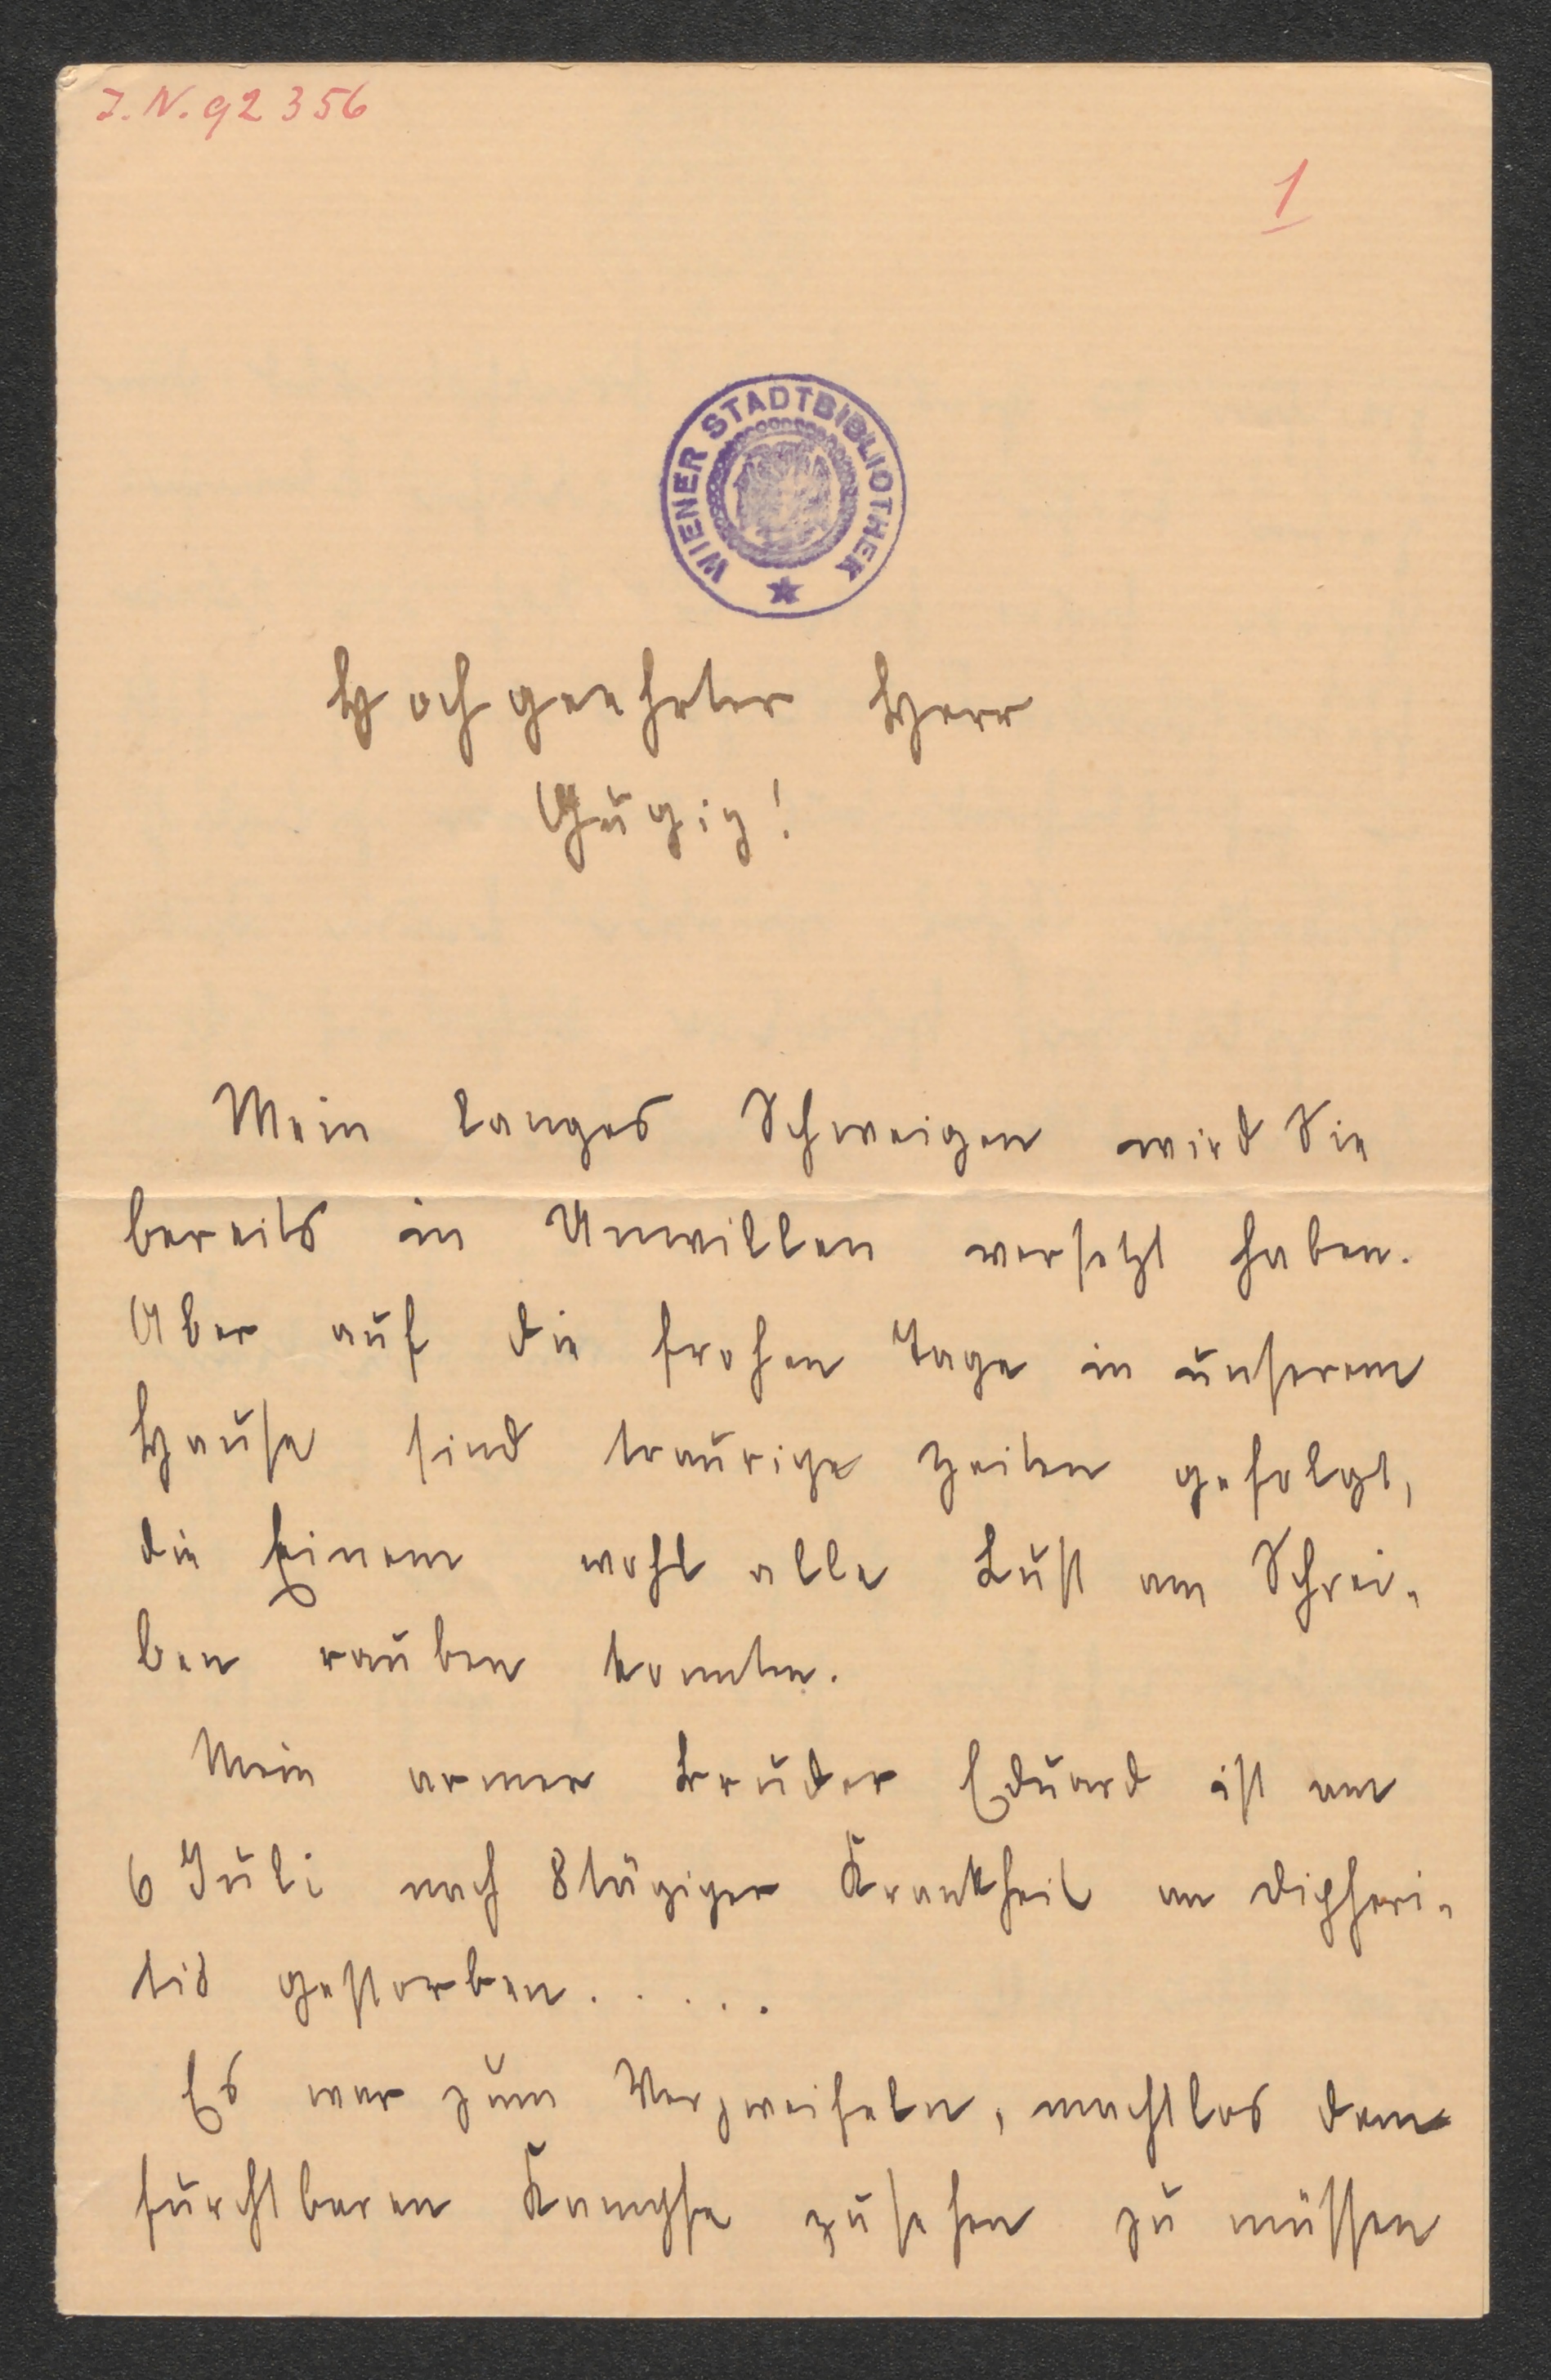 J. N. 92356
1
WIENER STADTBIBLIOTHEK
Hochgeehrter Herr
Gugig!
Mein langes Schweigen wird Sie
bereits in Unwillen versetzt haben.
Aber auf die frohen Tage in unserem
Hause sind traurige Zeiten gefolgt,
die Einem wohl alle Lust am Schrei-
ben rauben konnten.
Mein armer Bruder Eduard ist am
6 Juli nach 8tägiger Krankheit an Dipheri-
tis gestorben.....
Es war zum Verzweifeln, machtlos dem
furchtbaren Kampfe zusehen zu müssen